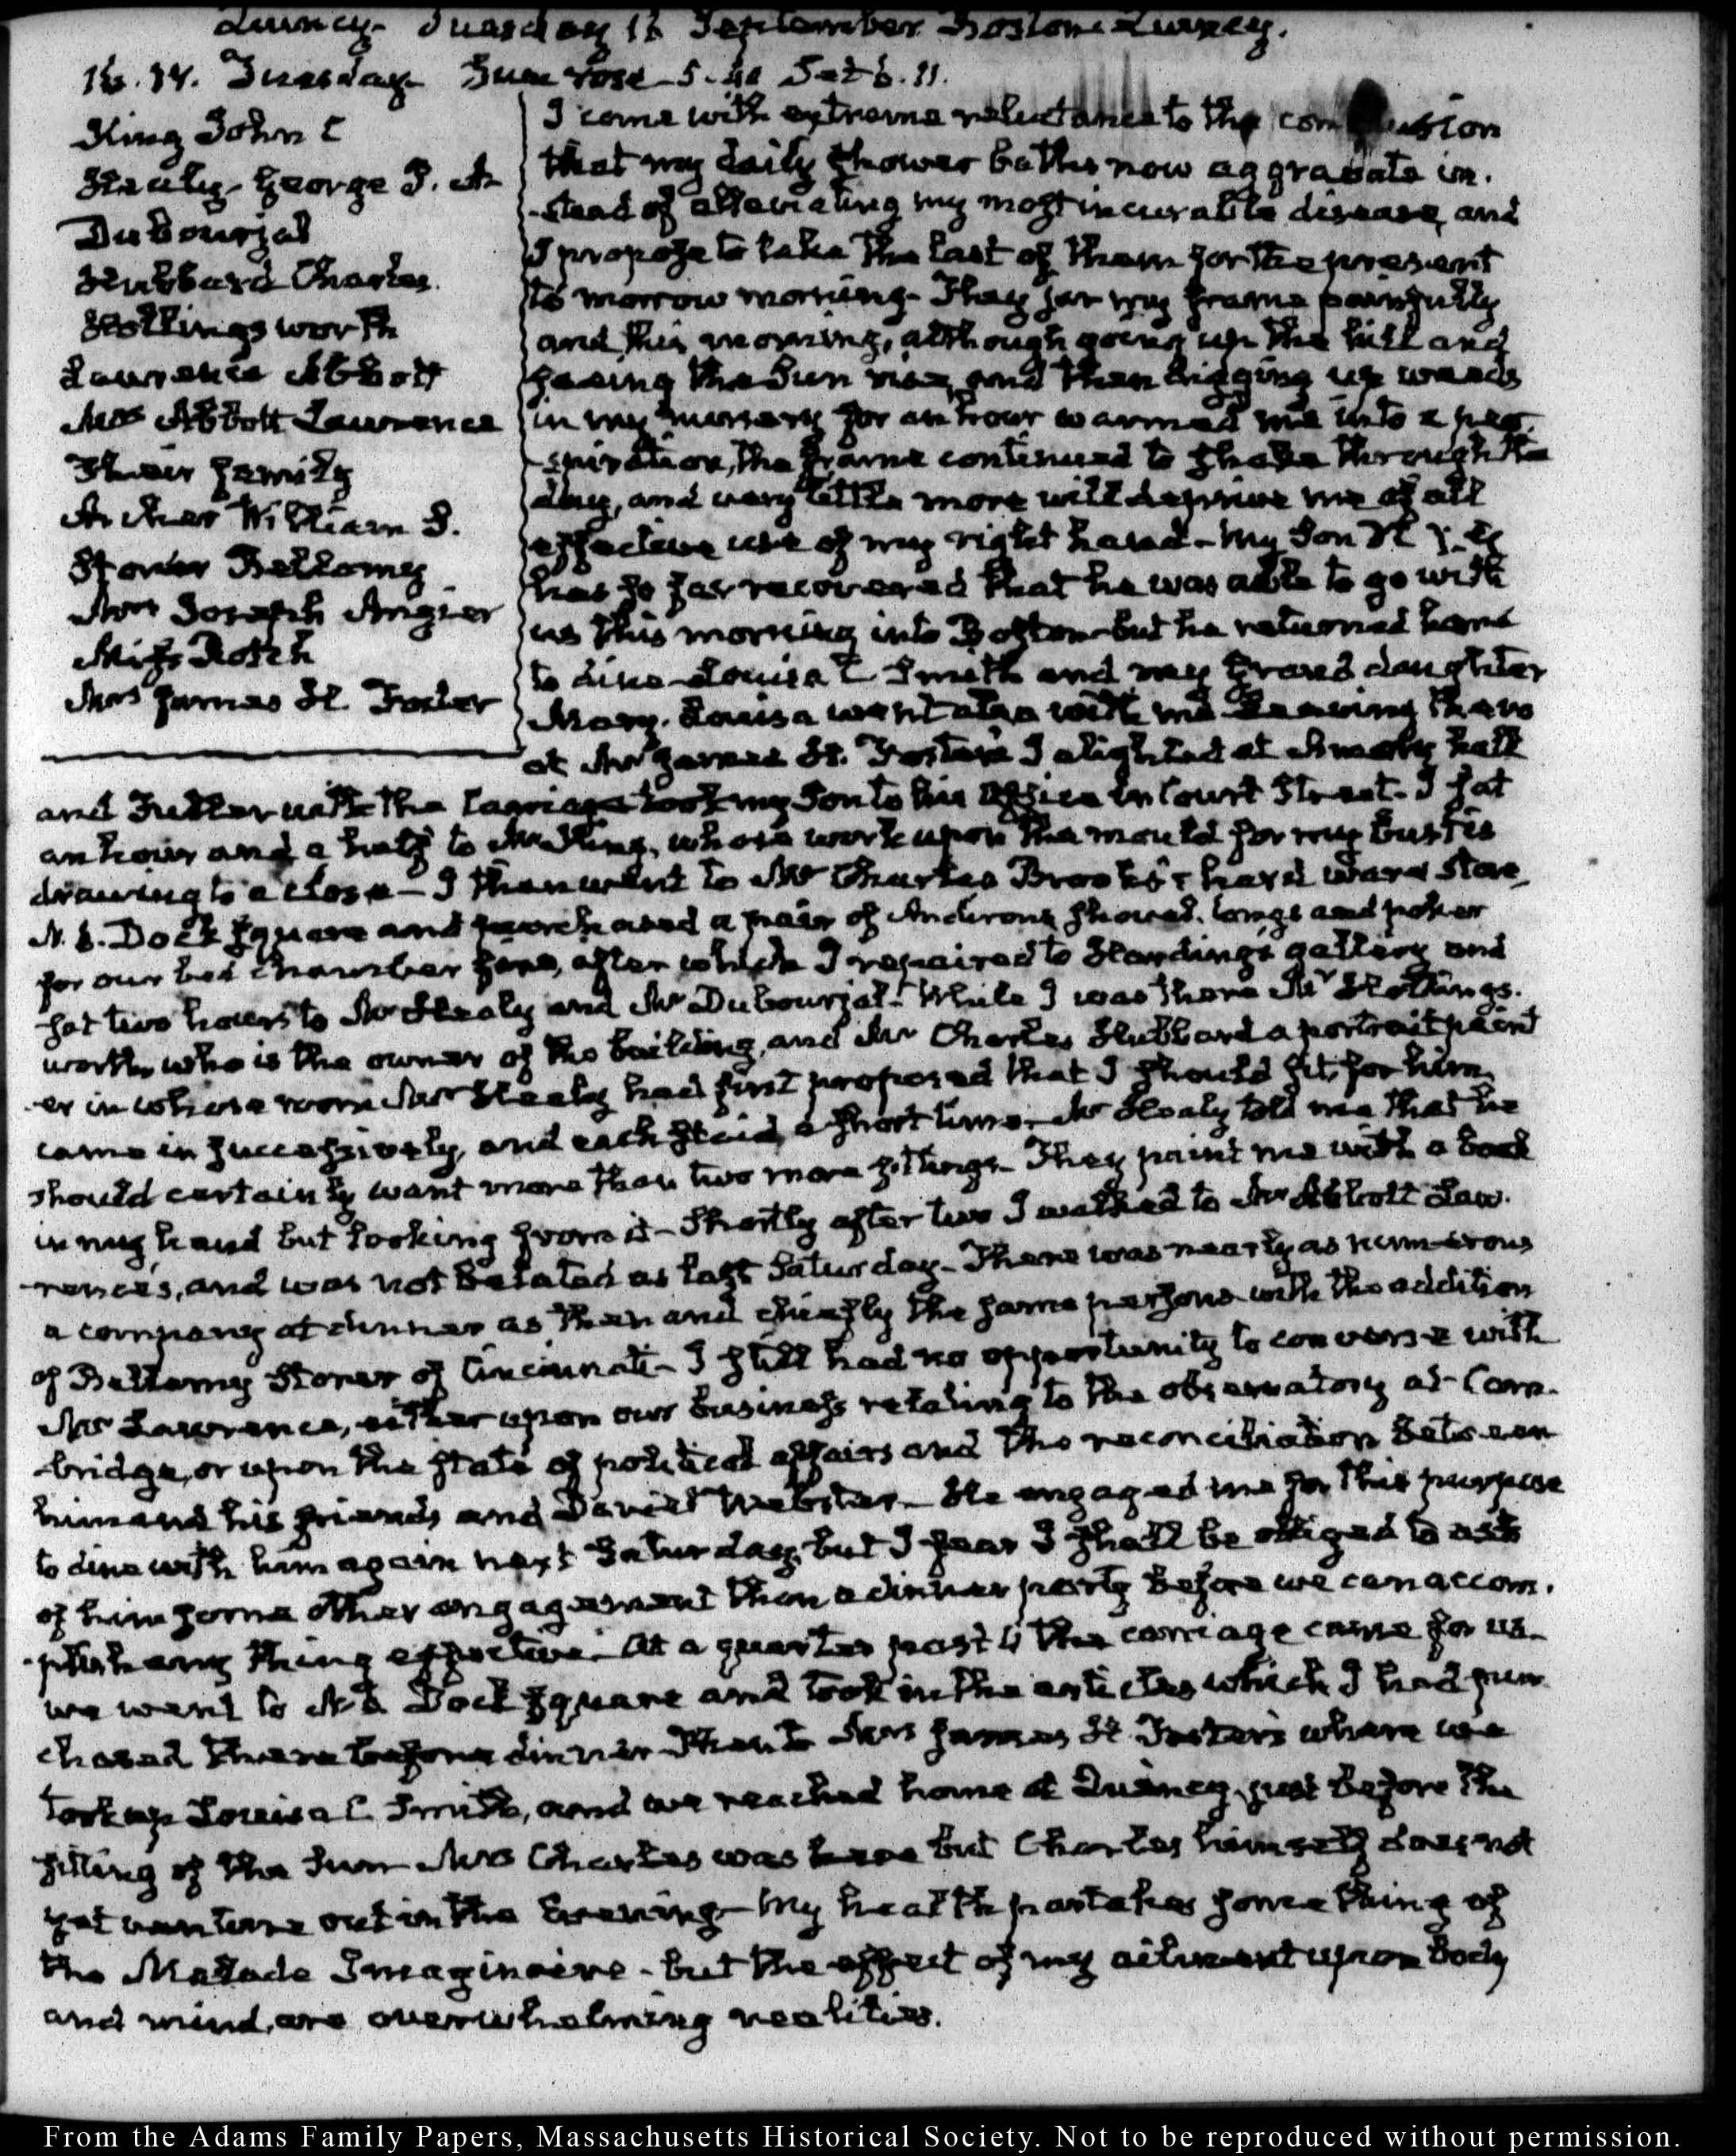 Quincy. Tuesday 16 September. Boston. Quincy.
16. IV. Tuesday. Sun rose 5.40 Set 6.11.
King John C
Healy. George P. A.
Dubourjal
Hubbard Charles.
Hollingsworth
Lawrence Abbott
Mrs Abbott Lawrence
Their family
Archer William S.
Storer Bellamy
Mrs Joseph Angier
Miss Rotch
Mrs James H. Foster
I come with extreme reluctance to the conclusion
that my daily shower baths now aggravate in-
-stead of alleviating my most incurable disease, and
I propose to take the last of them for the present
to morrow morning. They jar my frame painfully
and this morning, although going up the hill and
seeing the Sun rise, and then digging up weeds
in my nursery for an hour warmed me into a per-
-spiration, the frame continued to shake through the
day, and very little more will deprive me of all
effective use of my right hand. My Son
has so far recovered that he was able to go with
us this morning into Boston but he returned home
to dine. Louisa C Smith and my grand daughter
Mary. Louisa went also with me. Leaving them
at Mrs James H. Foster's I alighted at Amory hall
and with the Carriage took my Son to his Office in Court Street. I sat
an hour and a half to Mr King, whose work upon the mould for my bust is
drawing to a close — I then went to Mr Charles Brooks's hard ware Store,
N. 6. Dock square and purchased a pair of Andirons shovel, tongs and poker
for our bed chamber here, after which I repaired to Harding's gallery and
sat two hours to Mr Healy and Mr Dubourjal. While I was there Mr Hollings-
worth, who is the owner of the building, and Mr Charles Hubbard a portrait paint
-er in whose room Mr Healy had first proposed that I should sit for him,
came in successively, and each staid a short time. Mr Healy told me that he
should certainly want more than two more sittings. They paint me with a book
in my hand but looking from it — Shortly after two I walked to Mr Abbott Law-
-rence's, and was not belated as last Saturday. There was nearly as numerous
a company at dinner as then and chiefly the same persons with the addition
of Bellamy Storer of Cincinnati. I still had no opportunity to converse with
Mr Lawrence, either upon our business relating to the observatory at Cam-
-bridge, or upon the state of political affairs and the reconciliation between
him and his friends and Daniel Webster. He engaged me for this purpose
to dine with him again next Saturday, but I fear I shall be obliged to ask
of him some other engagement than a dinner party before we can accom-
-plish any thing effective. At a quarter past 4 the carriage came for us.
we went to N. 6. Dock square and took in the articles which I had pur
chased there before dinner. Then to Mrs James H Foster's where we
took up Louisa C Smith, and we reached home at Quincy just before the
setting of the Sun. Mrs Charles was here but Charles himself does not
yet venture out in the Evening. My health partakes something of
the Malade Imaginaire. but the effect of my ailment upon body
and mind, are overwhelming realities.
From the Adams Family Papers, Massachusetts Historical Society. Not to be reproduced without permission.